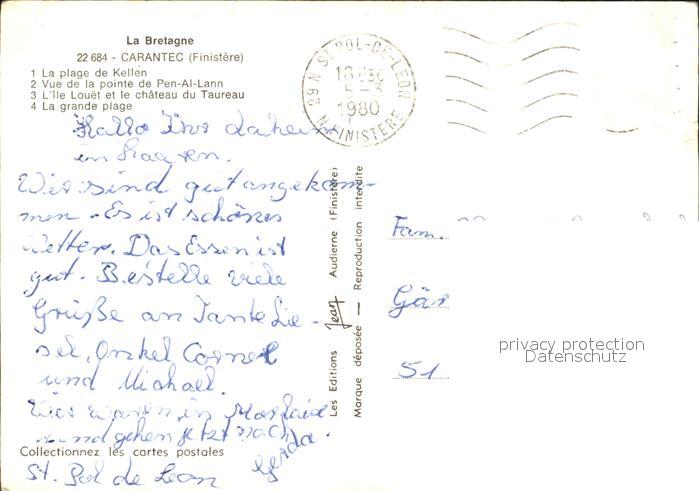 La Bretagne
22 684 - CARANTEC (Finistère)
1 La plage de Kellen
2 Vue de la pointe de Pen-Al-Lann
3 L'île Louët et le château du Taureau
4 La grande plage
29 N ST POL-DE-LEON
18 H 30
5 - 3
1980
N. FINISTERE
Hallo Ihr daheim
in Haaren.
Wir sind gut angekom-
men. Es ist schönes
Wetter. Das Essen ist
gut. Bestelle viele
Grüße an Tante Lie-
sel, Onkel Cornel
und Michael.
Wir waren in Morlaix
und gehen jetzt nach
St. Pol de Leon
Gerda.
Collectionnez les cartes postales
Les Editions Jean Audierne (Finistère)
Marque déposée — Reproduction interdite
Fam.
Gär
51
privacy protection
Datenschutz